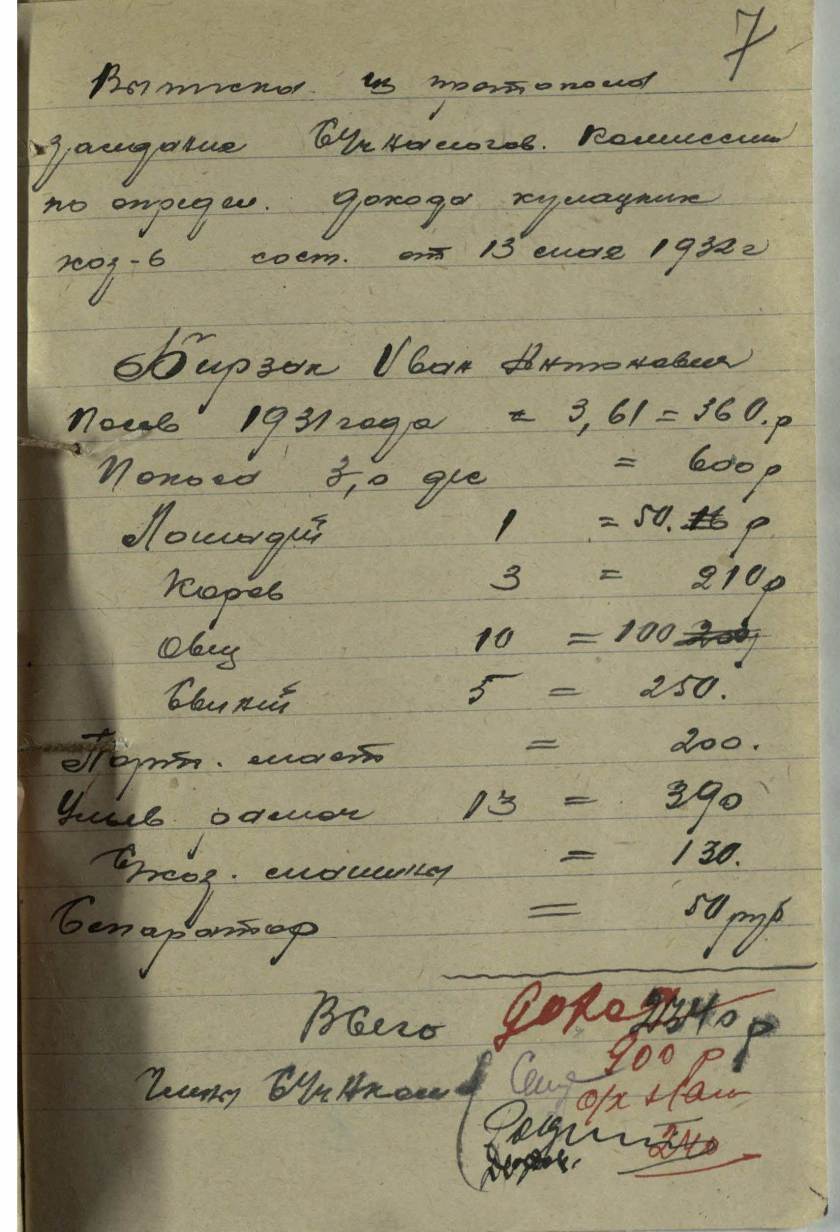 7
Выписка из протокола
заседание С/Уч налогов. комиссии
по определ. дохода кулацких
хоз-в сост. от 13 мая 1932 г
Бирзак Иван Антонович
Посев 1931 года = 3,61 = 360. р
Покоса 3,0 дес = 600 р
Лошадей 1 = 50. р
Коров 3 = 210 р
Овец 10 = 100
Свиней 5 = 250.
= 200.
Ульев рамоч 13 = 390
С/хоз. машины = 130.
Сепаратор = 50 руб
Всего Доход 2340 р
900 р
Члены С/Уч Н ком
с/х нал
240